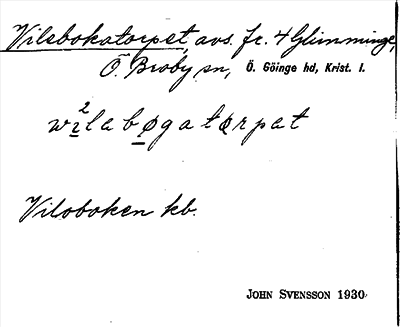 Vilsbokatorpet, avs. fr. 4 Glimminge,
Ö. Broby sn, Ö. Göinge hd, Krist. l.
wi²labøgatørpat
Viloboken kb.
JOHN SVENSSON 1930